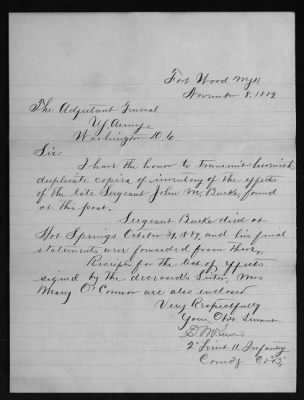 Fort Wood N.Y.H.
November 8, 1889
The Adjutant General
U.S. Army,
Washington D.C.
Sir:
I have the honor to transmit herewith
duplicate copies of inventory of the effects
of the late Sergeant John M. Burke, found
at this post.
Sergeant Burke died at
Hot Springs October 1889, and his final
statements were forwarded from there.
Receipts for the list of effects
signed by the deceased's Sister Mrs
Mary O'Connor are also enclosed
Very Respectfully
Your Obt Servant
2d Lieut 11 Infantry
Comdg Co